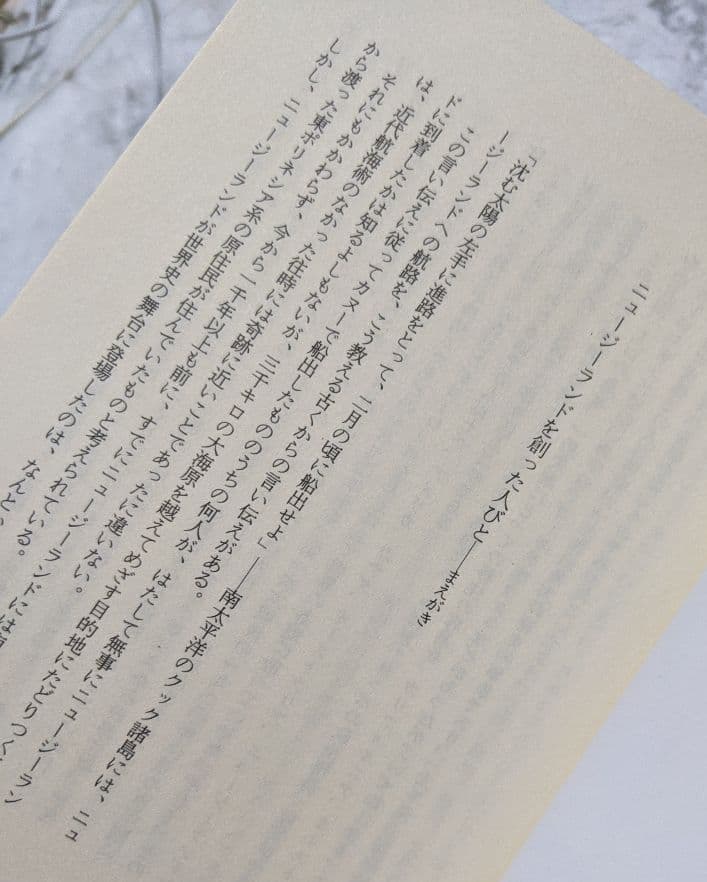 ニュージーランドを創った人びと——まえがき
「沈む太陽の左手に進路をとって、二月の頃に船出せよ」——南太平洋のクック諸島には、ニュ
ージーランドへの航路を、こう教える古くからの言い伝えがある。
この言い伝えに従ってカヌーで船出したもののうちの何人が、はたして無事にニュージーラン
ドに到着したかは知るよしもないが、三千キロの大海原を越えてめざす目的地にたどりつく
は、近代航海術のなかった往時には奇跡に近いことであったに違いない。
それにもかかわらず、今から一千年以上も前に、すでにニュージーランドには
から渡った東ポリネシア系の原住民が住んでいたものと考えられている。
しかし、ニュージーランドが世界史の舞台に登場したのは、なんと、